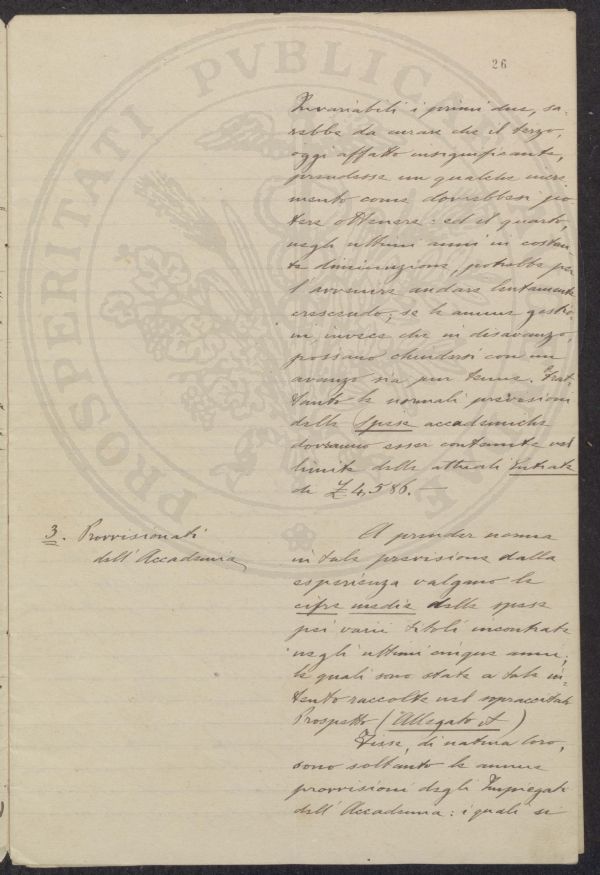 26
Invariabili i primi due, sa-
rebbe da curare che il terzo,
oggi affatto insignificante,
prendesse un qualche incre-
mento come dovrebbesi po-
tere ottenere: ed il quarto,
negli ultimi anni in costan-
te diminuzione, potrebbe per
l'avvenire andare lentamente
crescendo, se le annue gestio-
ni invece che in disavanzo,
possano chiudersi con un
avanzo sia pur tenue. Frat-
tanto le normali previsioni
delle Spese accademiche
dovranno esser contenute nel
limite delle attuali Entrate
di £ 4,586.—
3. Provvisionati
dell'Accademia
A prender norma
in tale previsione dalla
esperienza valgano le
cifre medie delle spese
pei varii titoli incontrate
negli ultimi cinque anni,
le quali sono state a tale in-
tento raccolte nel sopraccitato
Prospetto (Allegato A)
Fisse, di natura loro,
sono soltanto le annue
provvisioni degli Impiegati
dell'Accademia: i quali si
PROSPERITATI PVBLICAE